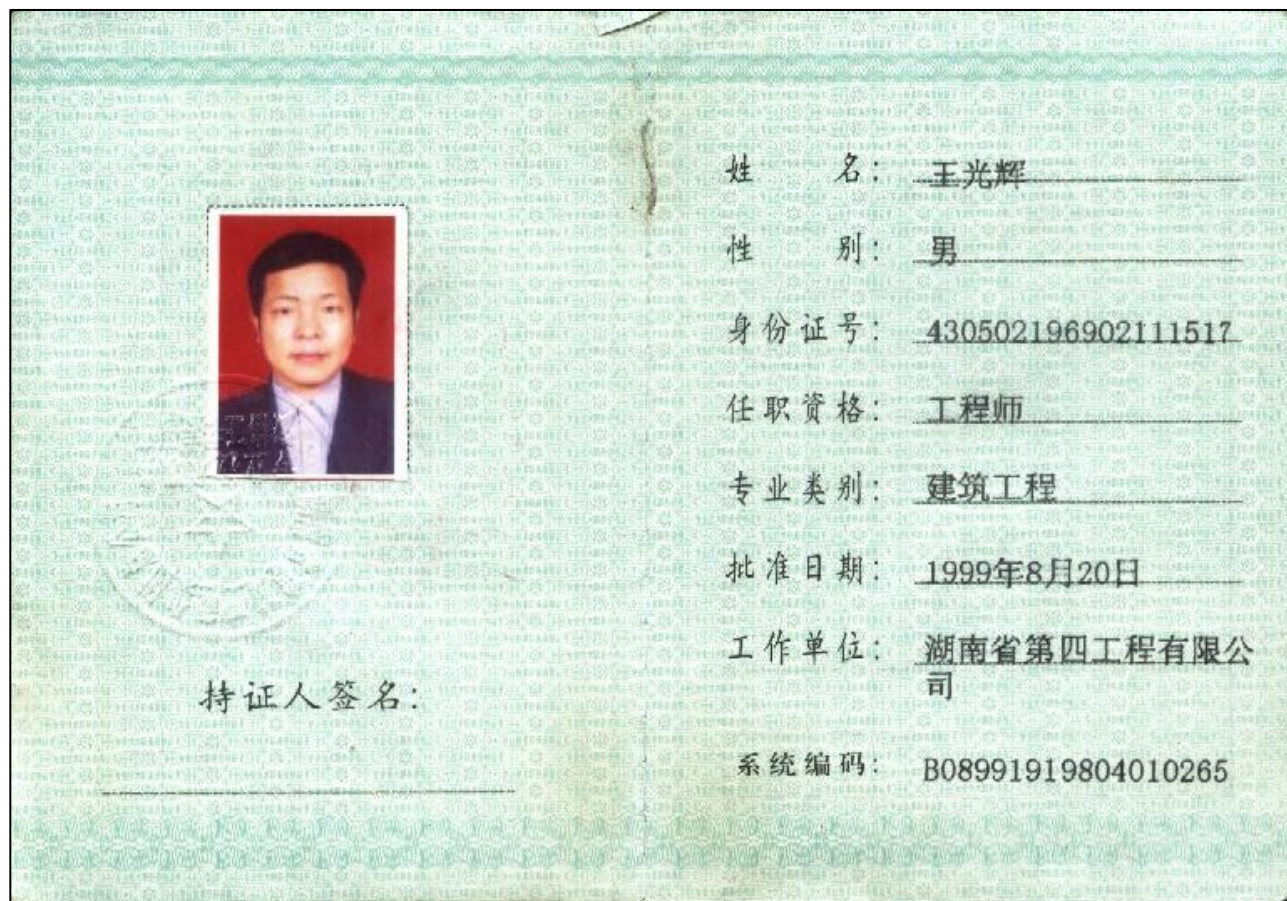 姓名： 王光辉
性别： 男
身份证号： 430502196902111517
任职资格： 工程师
专业类别： 建筑工程
批准日期： 1999年8月20日
工作单位： 湖南省第四工程有限公
司
持证人签名：
系统编码： B08991919804010265